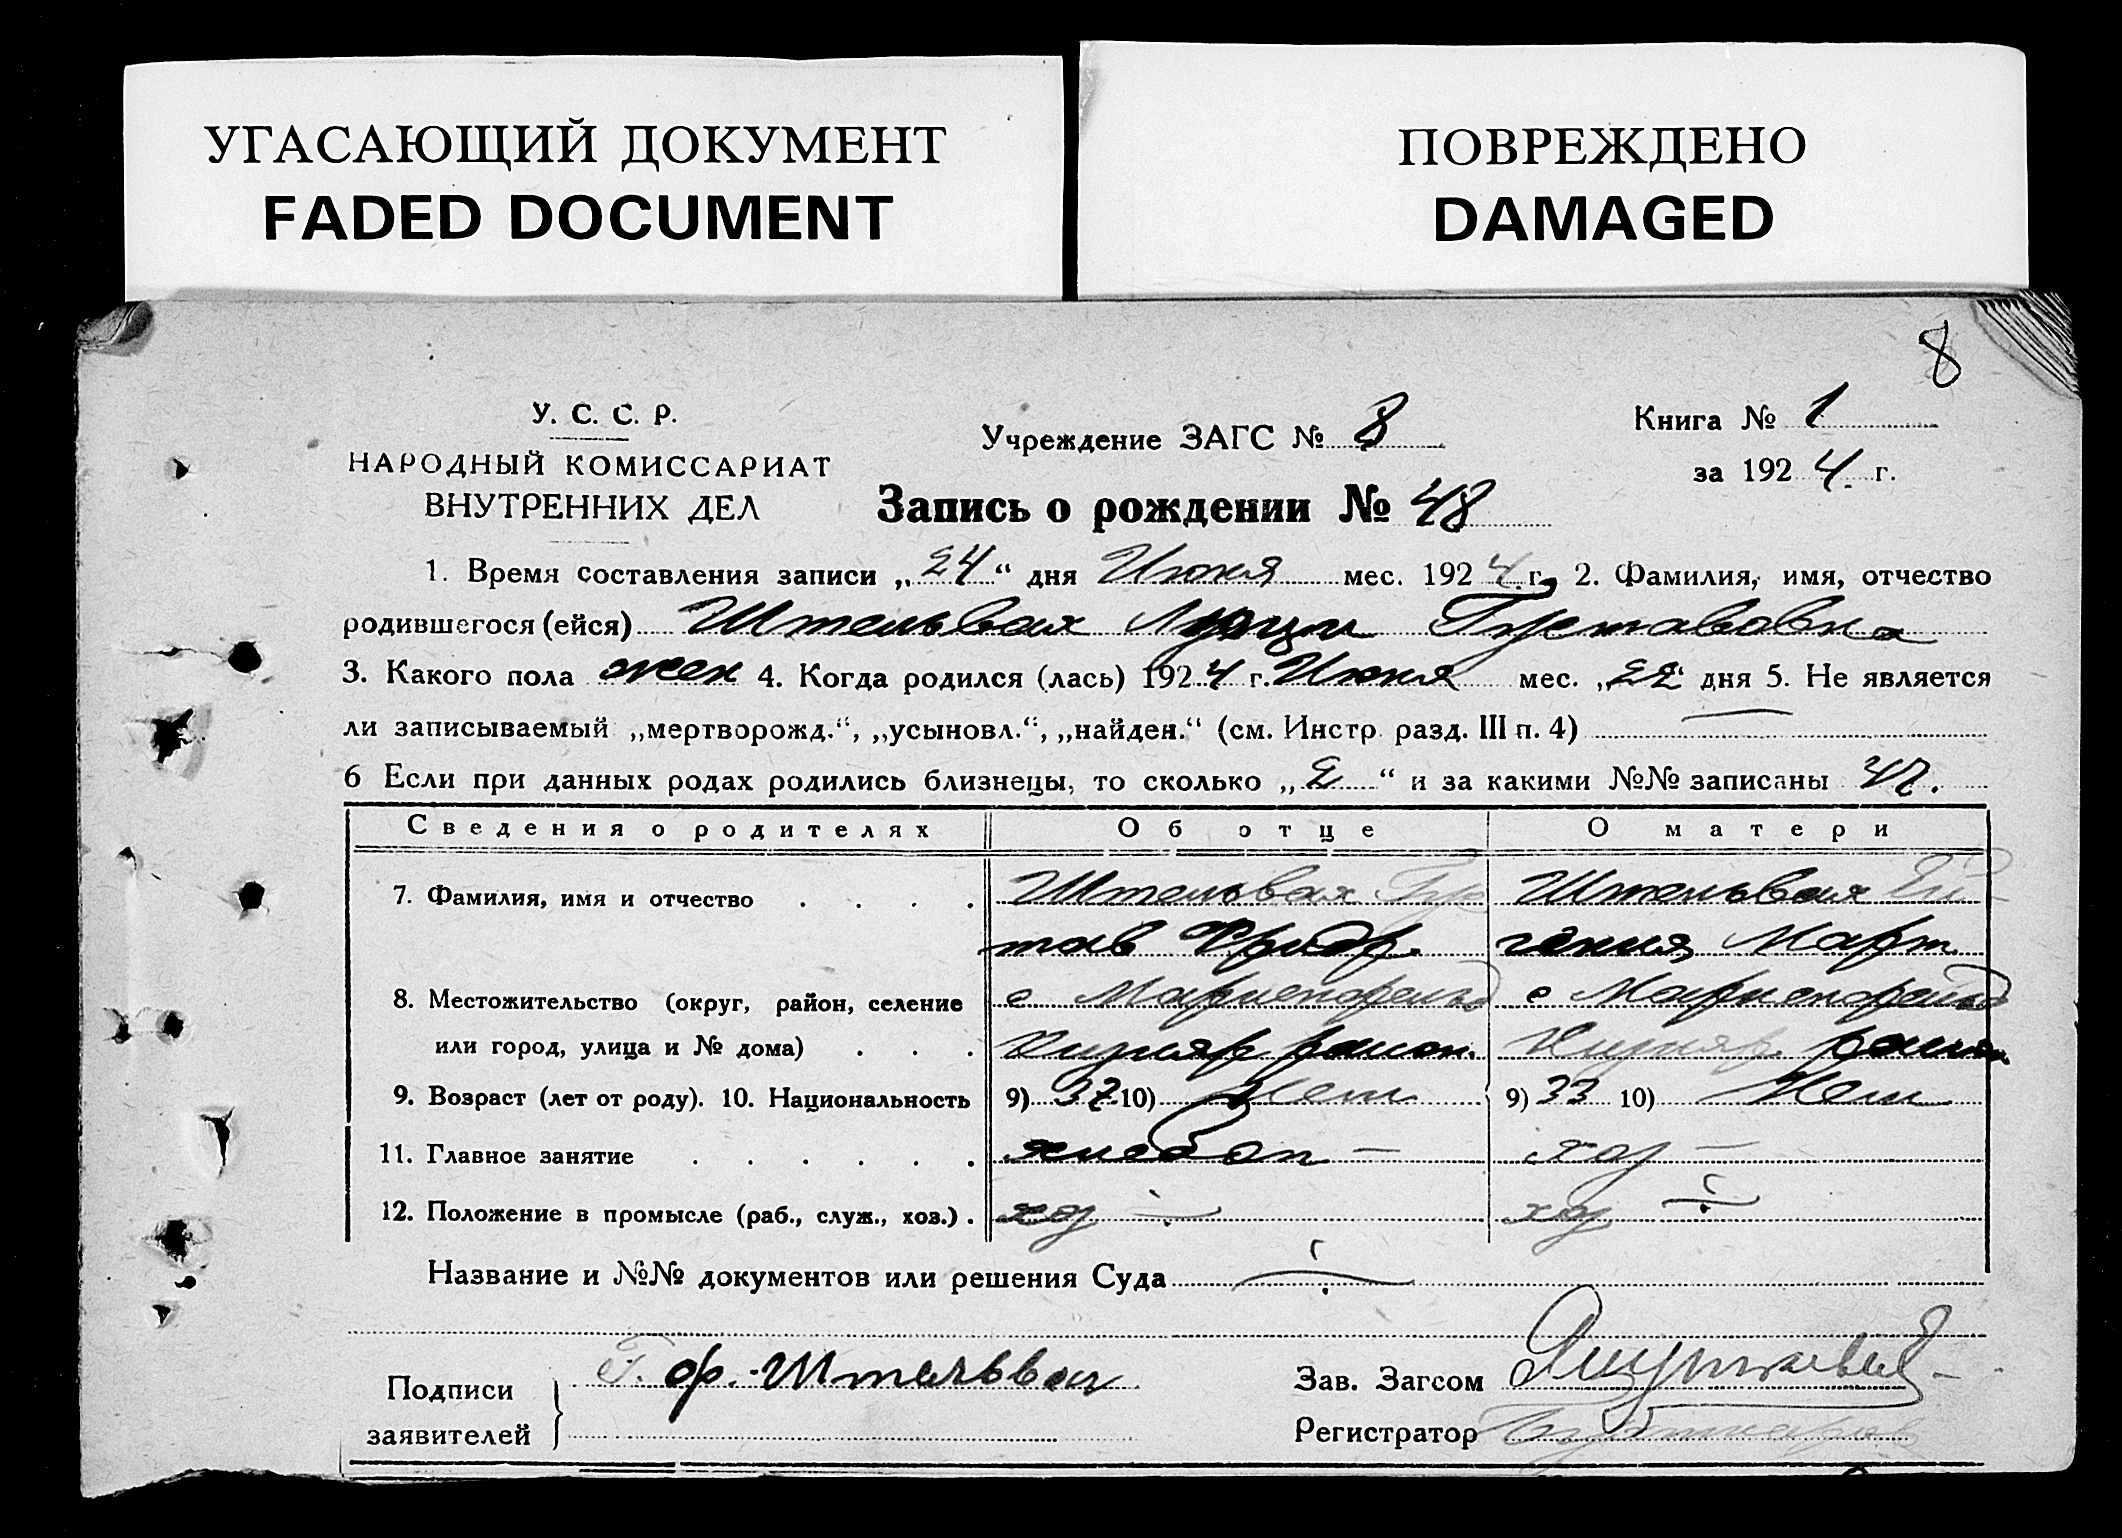 УГАСАЮЩИЙ ДОКУМЕНТ
FADED DOCUMENT
ПОВРЕЖДЕНО
DAMAGED
8
У. С. С. Р.
НАРОДНЫЙ КОМИССАРИАТ
ВНУТРЕННИХ ДЕЛ
Учреждение ЗАГС № 8
Книга № 1
за 1924 г.
Запись о рождении № 48
1. Время составления записи „24“ дня Июня мес. 1924 г. 2. Фамилия, имя, отчество
родившегося (ейся) Штельвах Люци Густавовна
3. Какого пола жен 4. Когда родился (лась) 1924 г. Июня мес. „22“ дня 5. Не является
ли записываемый „мертворожд.“, „усыновл.“, „найден.“ (см. Инстр. разд. III п. 4) —
6 Если при данных родах родились близнецы, то сколько „2“ и за какими №№ записаны 47.
Сведения о родителях Об отце О матери
7. Фамилия, имя и отчество . . . . Штельвах Гус Штельвах
тав Фридр. Март.
8. Местожительство (округ, район, селение с Мариенфельд с Мариенфельд
или город, улица и № дома) . . . район. район
9. Возраст (лет от роду). 10. Национальность 9) 37 10) Нем 9) 33 10) Нем
11. Главное занятие . . . . . . хлебоп — хоз —
12. Положение в промысле (раб., служ., хоз.) . хоз хоз
Название и №№ документов или решения Суда
Подписи
заявителей
Г. Фр. Штельвах
Зав. Загсом
Регистратор